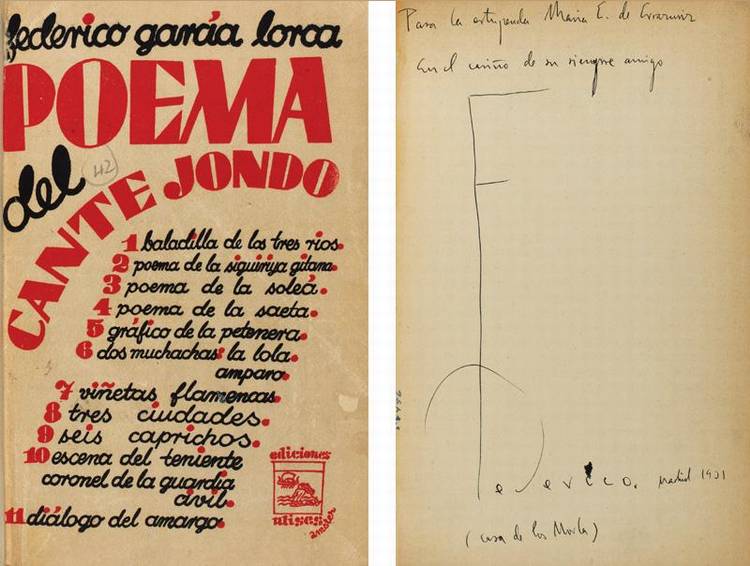 federico garcía lorca
POEMA
del
42
CANTE JONDO
1 baladilla de los tres rios.
2 poema de la siguiriya gitana.
3 poema de la soleá.
4 poema de la saeta.
5 gráfico de la petenera.
6 dos muchachas: la lola.
amparo.
7 viñetas flamencas.
8 tres ciudades.
9 seis caprichos.
10 escena del teniente
coronel de la guardia
civil.
11 diálogo del amargo.
ediciones
ulises
amster
Para la estupenda Maria E. de Errazuriz
En el cariño de su siempre amigo
Federico. Madrid 1931
(casa de los Morla)